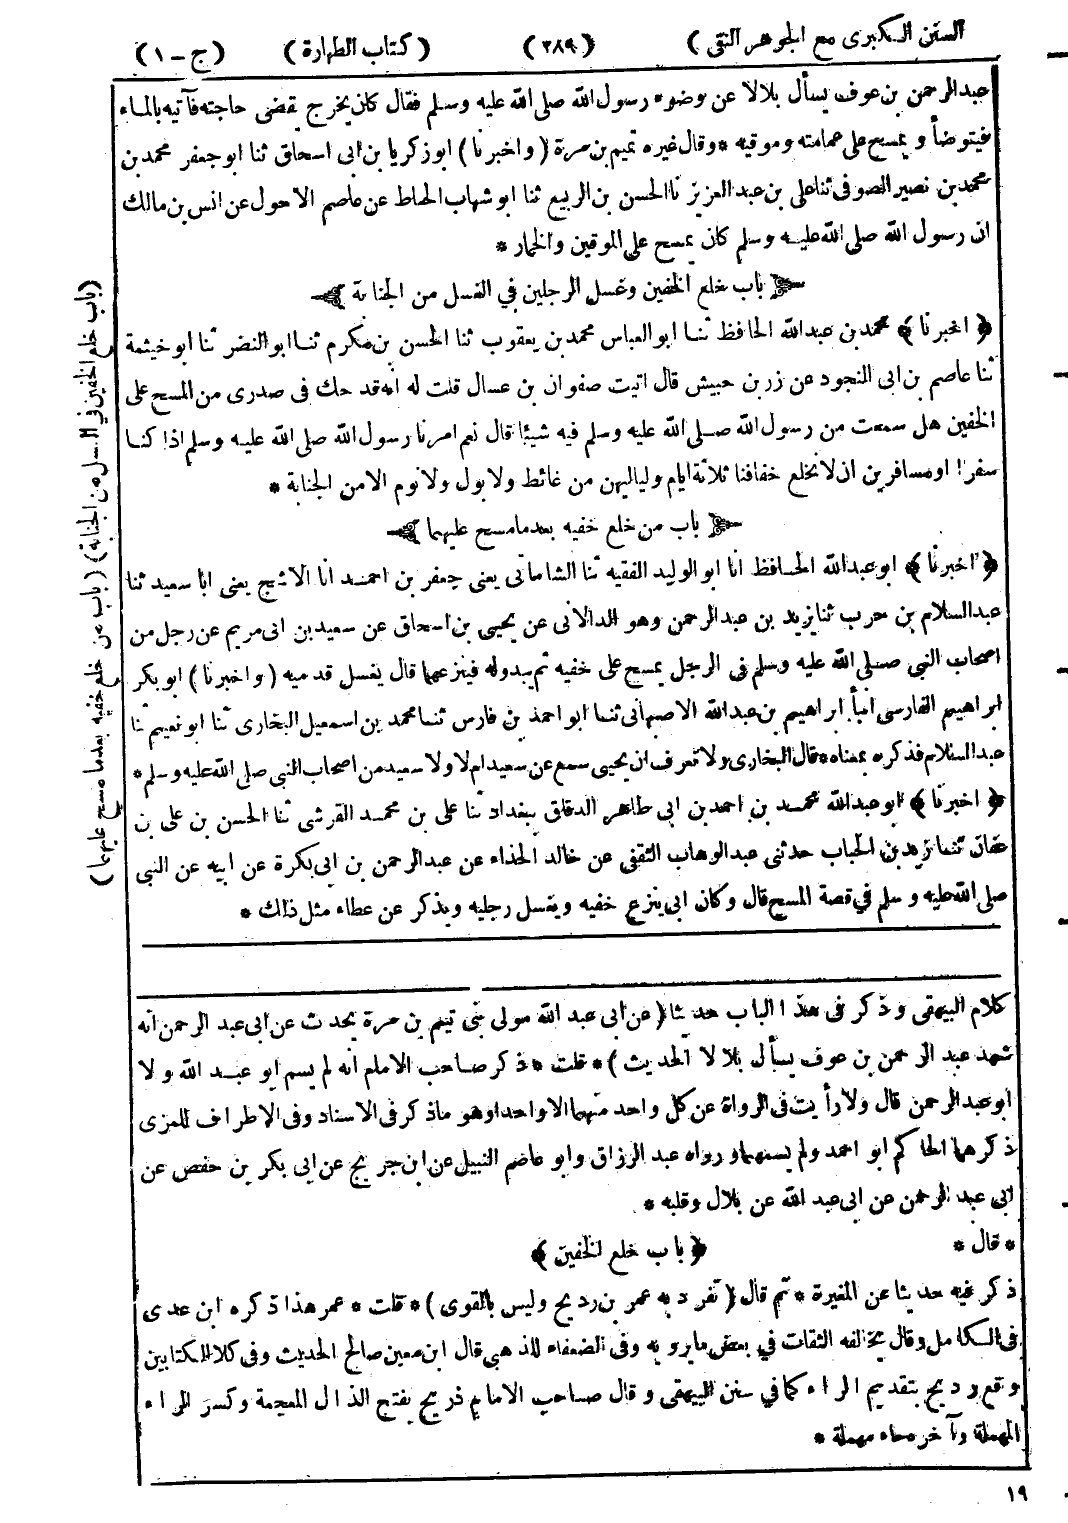 السنن الكبرى مع الجوهر النقى ) (٢٨٩) ( كتاب الطهارة ) (ج - ١)
عبد الرحمن بن عوف يسأل بلالا عن وضوء رسول الله صلى الله عليه وسلم فقال كان يخرج يقضى حاجته فآتيه بالماء
فيتوضأ و يمسح على عمامته وموقيه * وقال غيره تميم بن مرة ( واخبرنا ) ابو زكريا بن ابى اسحاق ثنا ابو جعفر محمد بن
محمد بن نصير الصوفى ثنا على بن عبد العزيز نا الحسن بن الربيع ثنا ابو شهاب الحناط عن عاصم الاحول عن انس بن مالك
ان رسول الله صلى الله عليه وسلم كان يمسح على الموقين والخمار *
باب خلع الخفين وغسل الرجلين في الغسل من الجنابة
﴿ اخبرنا ﴾ محمد بن عبد الله الحافظ ثنا ابو العباس محمد بن يعقوب ثنا الحسن بن مكرم ثنا ابو النضر ثنا ابو خيثمة
ثنا عاصم بن ابى النجود عن زر بن حبيش قال اتيت صفوان بن عسال قلت له انه قد حك فى صدرى من المسح على
الخفين هل سمعت من رسول الله صلى الله عليه وسلم فيه شيئا قال نعم امرنا رسول الله صلى الله عليه وسلم اذا كنا
سفرا او مسافرين ان لا نخلع خفافنا ثلاثة ايام ولياليهن من غائط ولا بول ولا نوم الا من الجنابة *
باب من خلع خفيه بعد ما مسح عليهما
﴿ اخبرنا ﴾ ابو عبد الله الحافظ انا ابو الوليد الفقيه ثنا الشاماتى يعنى جعفر بن احمد انا الاشج يعنى ابا سعيد ثنا
عبد السلام بن حرب ثنا يزيد بن عبد الرحمن وهو الدالانى عن يحيى بن اسحاق عن سعيد بن ابى مريم عن رجل من
اصحاب النبى صلى الله عليه وسلم فى الرجل يمسح على خفيه ثم يبدو له فينزعهما قال يغسل قدميه ( واخبرنا ) ابو بكر
ابراهيم الفارسى انبأ ابراهيم بن عبد الله الاصبهانى ثنا ابو احمد بن فارس ثنا محمد بن اسمعيل البخارى ثنا ابو نعيم ثنا
عبد السلام فذكره بمعناه * قال البخارى ولا نعرف ان يحيى سمع عن سعيد ام لا ولا سعيد من اصحاب النبى صلى الله عليه وسلم *
﴿ اخبرنا ﴾ ابو عبد الله محمد بن احمد بن ابى طاهر الدقاق ببغداد ثنا على بن محمد القرشى ثنا الحسن بن على بن
عفان ثنا زيد بن الحباب حدثنى عبد الوهاب الثقفى عن خالد الحذاء عن عبد الرحمن بن ابى بكرة عن ابيه عن النبى
صلى الله عليه وسلم في قصة المسح قال وكان ابى ينزع خفيه ويغسل رجليه ويذكر عن عطاء مثل ذلك *
(باب خلع الخفين في الغسل من الجنابة) (باب من خلع خفيه بعد ما مسح عليهما)
كلام البيهقى وذكر فى هذا الباب حديثا ( عن ابى عبد الله مولى بنى تيم بن مرة يحدث عن ابى عبد الرحمن انه
شهد عبد الرحمن بن عوف يسأل بلالا الحديث ) * قلت * ذكر صاحب الامام انه لم يسم ابو عبد الله ولا
ابو عبد الرحمن قال ولا رأيت فى الرواة عن كل واحد منهما الا واحدا وهو ما ذكر فى الاسناد وفى الاطراف للمزى
ذكرهما الحاكم ابو احمد ولم يسمهما ورواه عبد الرزاق وابو عاصم النبيل عن ابن جريج عن ابى بكر بن حفص عن
ابى عبد الرحمن عن ابى عبد الله عن بلال وقلبه *
* قال * ﴿ باب خلع الخفين ﴾
ذكر فيه حديثا عن المغيرة * ثم قال ( تفرد به عمر بن رديح وليس بالقوى ) * قلت * عمر هذا ذكره ابن عدى
فى الكامل وقال يخالفه الثقات في بعض ما يرويه وفى الضعفاء للذهبى قال ابن معين صالح الحديث وفى كلا الكتابين
وقع رديح بتقديم الراء كما في سنن البيهقى وقال صاحب الامام ذريح بفتح الذال المعجمة وكسر الراء
المهملة وآخره حاء مهملة *
١٩